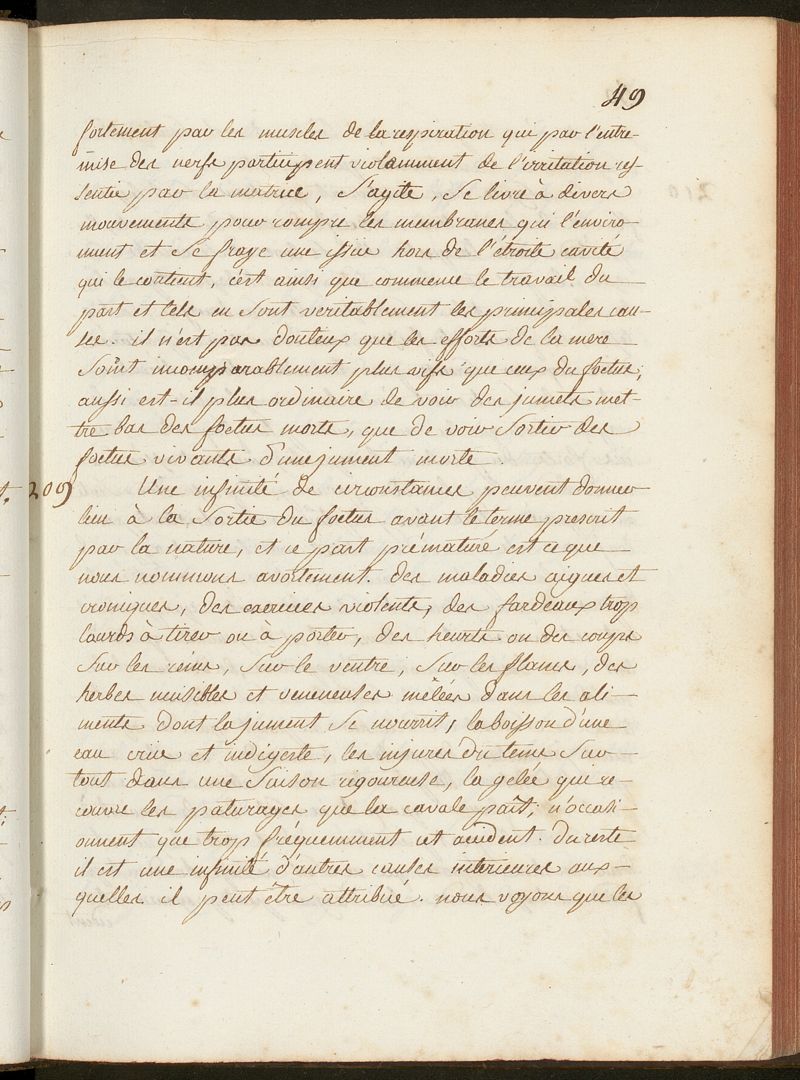 49
fortement par les muscles de la respiration qui par l'entre-
mise des nerfs participent violamment de l'irritation res-
sentie par la matrice, s'agite, se livre à divers
mouvements pour rompre les membranes qui l'enviro-
nnent et se fraye une issüe hors de l'étroite cavité
qui le contient, c'est ainsi que commence le travail du
part et tels en sont veritablement les principales cau-
ses. il n'est pas douteux que les efforts de la mere
soint incomparablement plus vifs que ceux du foetus,
aussi est-il plus ordinaire de voir des juments met-
tre bas des foetus morts, que de voir sortir des
foetus vivants d'une jument morte.
209 Une infinité de circonstances peuvent donner
lieu à la sortie du foetus avant le terme prescrit
par la nature, et ce part prématuré est ce que
nous nommons avortement. des maladies aigues et
croniques, des exercices violents, des fardeaux trop
lourds à tirer ou à porter, des heurts ou des coups
sur les reins, sur le ventre, sur les flancs, des
herbes nuisibles et veneneuses mêlées dans les ali-
ments dont la jument se nourrit, la boisson d'une
eau crüe et indigeste, les injures du tems sur-
tout dans une saison rigoureuse, la gelée qui re-
couvre les paturages que la cavale paît, n'occasi-
onnent que trop fréquemment cet accident. Du reste
il est une infinité d'autres causes interieures aux-
quelles il peut être attribué. nous voyons que les